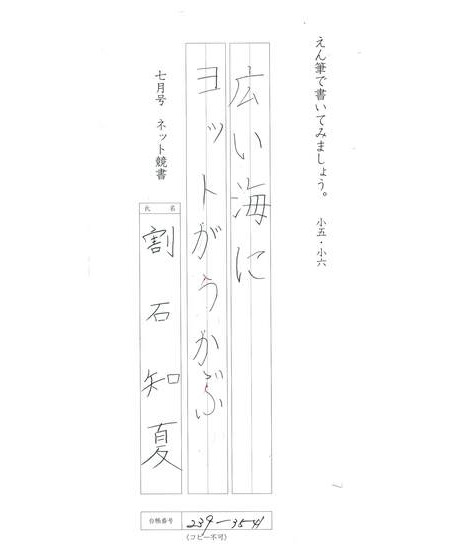 えん筆で書いてみましょう。 小五・小六
広い海に
ヨットがうかぶ
七月号 ネット競書
氏名
割石知夏
台帳番号 239-3541
(コピー不可)